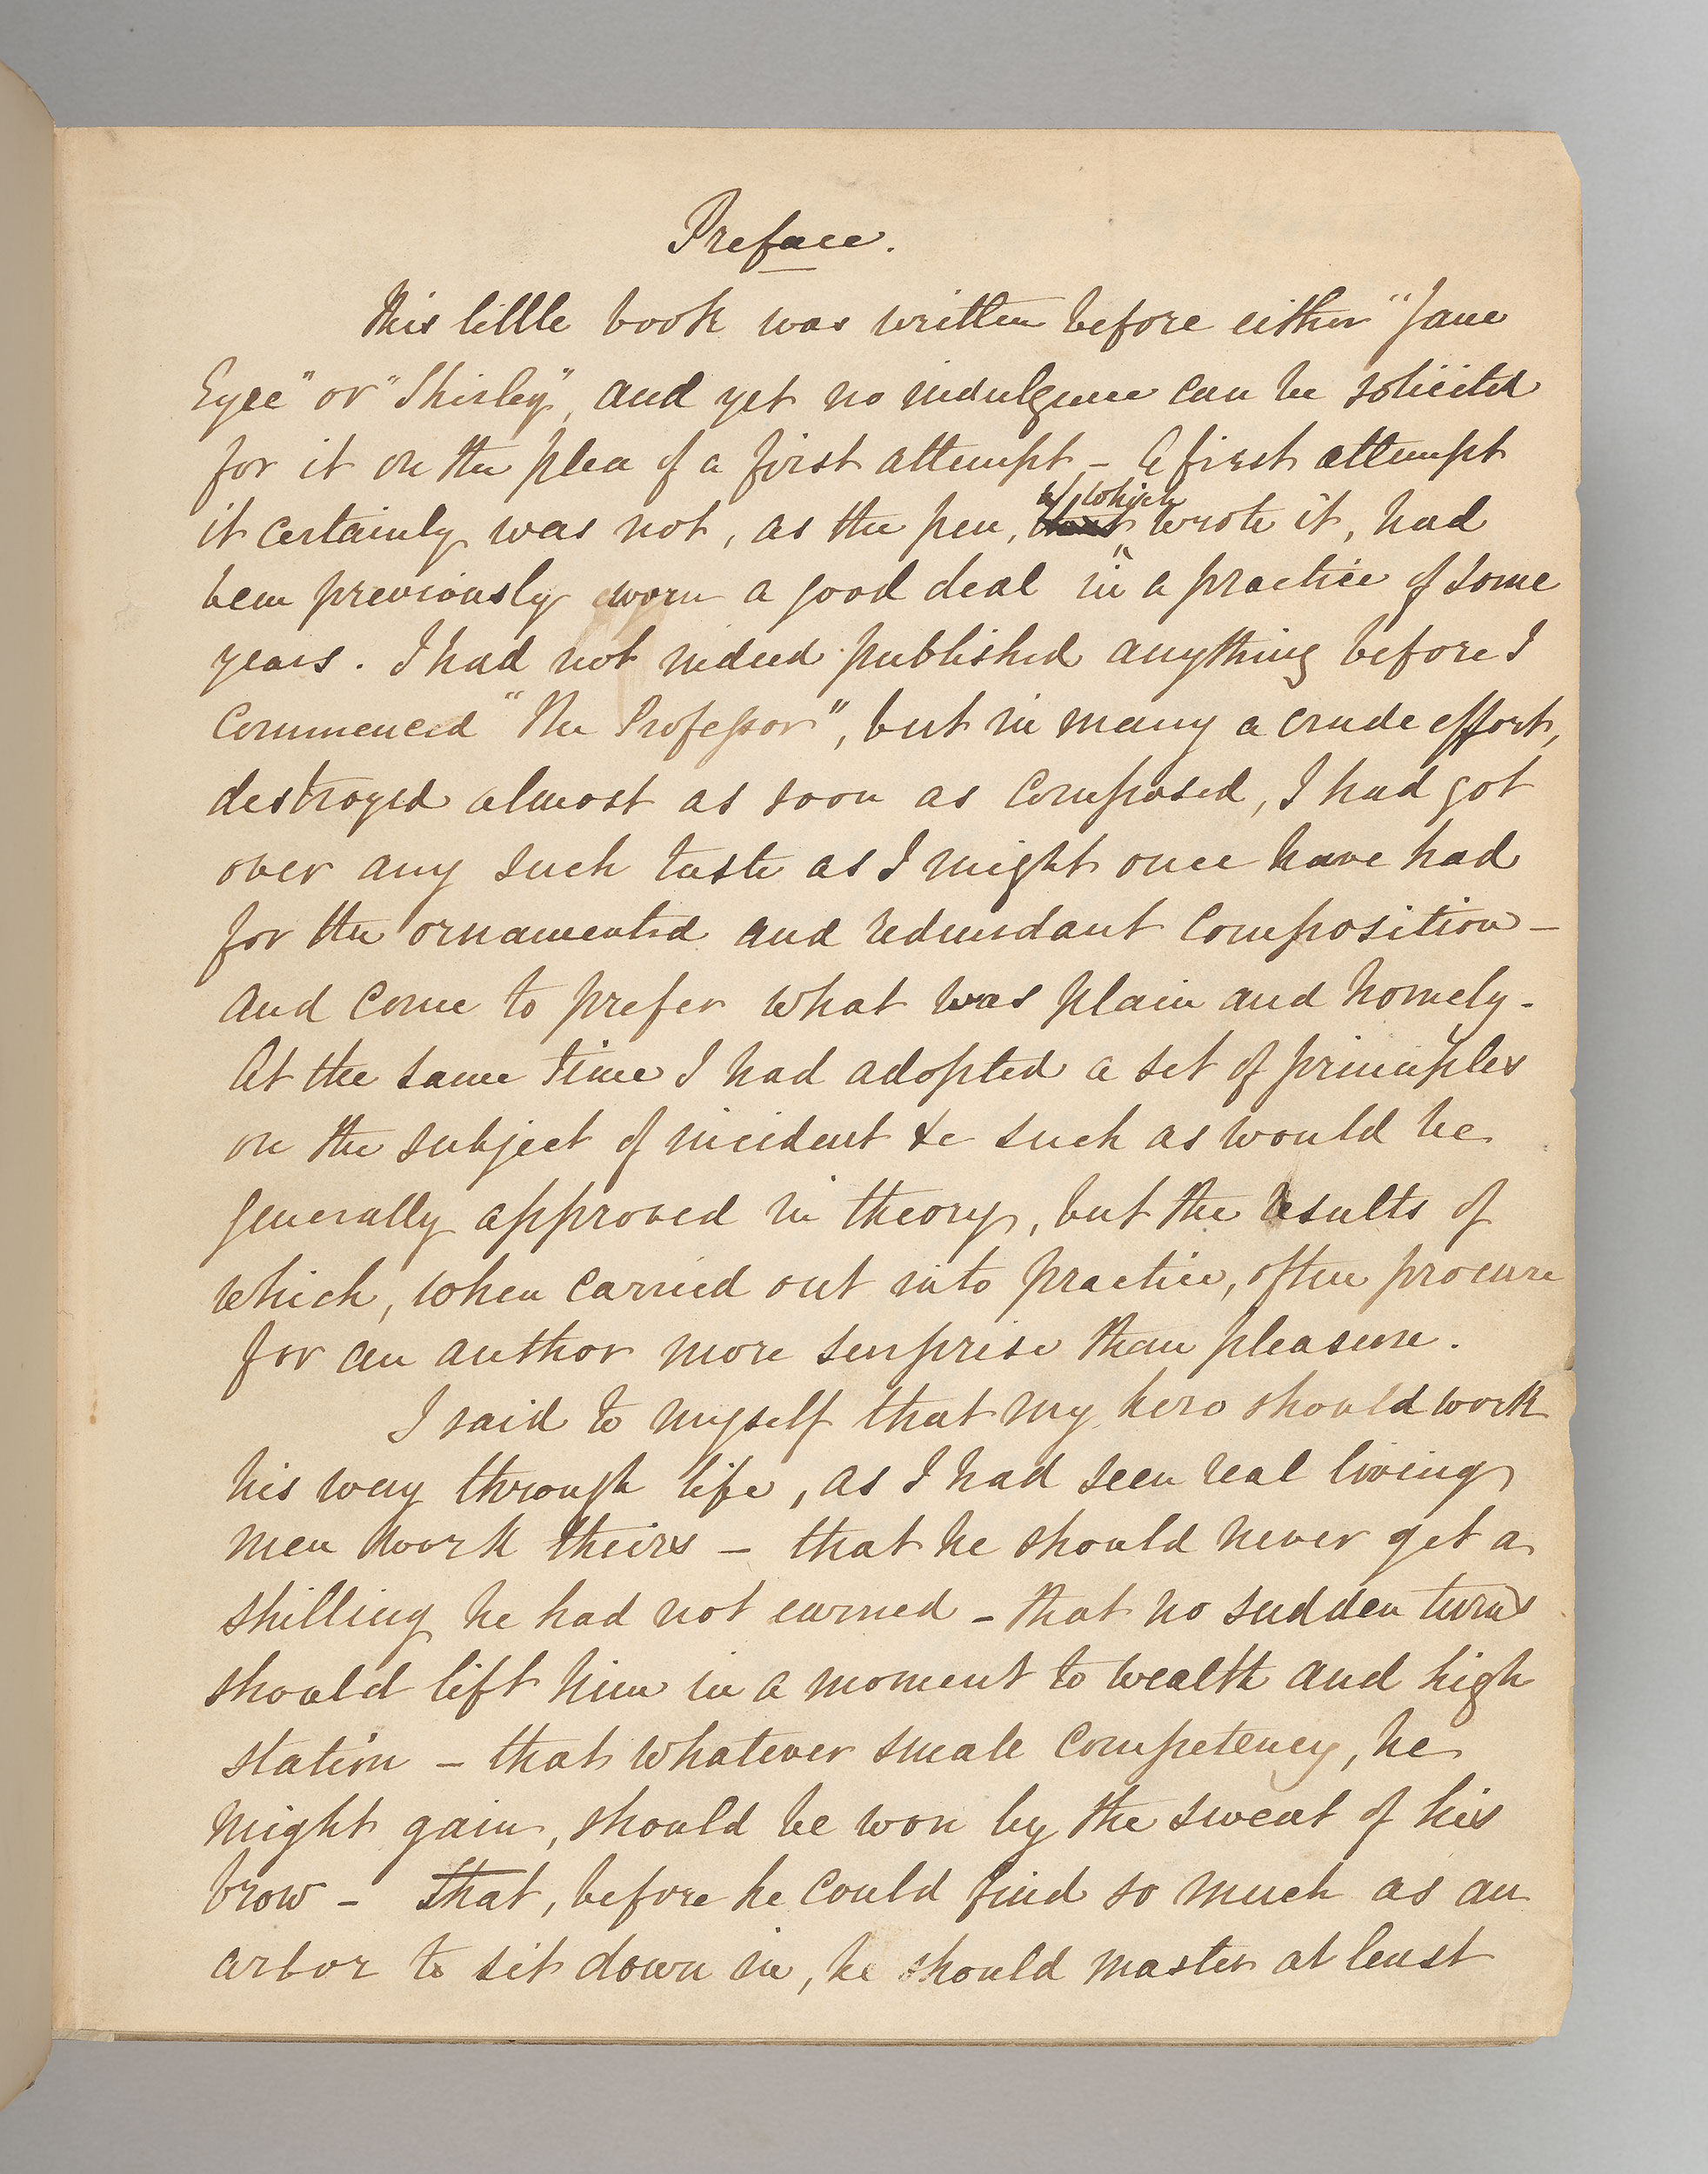 Preface.
This little book was written before either "Jane
Eyre" or "Shirley", and yet no indulgence can be solicited
for it on the plea of a first attempt - A first attempt
which
it certainly was not, as the pen, wrote it, had
been previously worn a good deal in a practice of some
years. I had not indeed published anything before I
commenced "The Professor", but in many a crude effort,
destroyed almost as soon as composed, I had got
over any such taste as I might once have had
for the ornamented and redundant composition -
and come to prefer what was plain and homely.
At the same time I had adopted a set of principles
on the subject of incident &c such as would be
generally approved in theory, but the results of
which, when carried out into practice, often procure
for an author more surprise than pleasure.
I said to myself that my hero should work
his way through life, as I had seen real living
men work theirs - that he should never get a
shilling he had not earned - that no sudden turns
should lift him in a moment to wealth and high
station - that whatever small competency, he
might gain, should be won by the sweat of his
brow - that, before he could find so much as an
arbor to sit down in, he should master at least